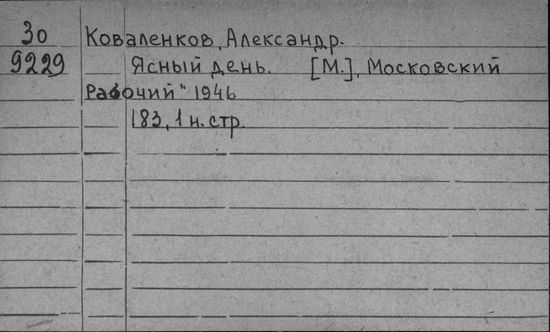 30 Коваленков, Александр.
9229 Ясный день. [М.], Московский
Рабочий" 1946
183, 1 н. стр.